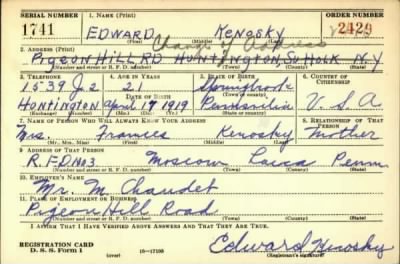 SERIAL NUMBER 1. NAME (Print) ORDER NUMBER
1741 EDWARD KENOSKY 2429
(First) (Middle) (Last)
Change of Address
2. ADDRESS (Print)
Pigeon Hill RD HUNTINGTON, Suffolk N.Y.
(Number and street or R. F. D. number) (Town) (County) (State)
3. TELEPHONE 4. AGE IN YEARS 5. PLACE OF BIRTH 6. COUNTRY OF CITIZENSHIP
1539 J 2 21
DATE OF BIRTH (Town or county)
HUNTINGTON April 17 1919 Pennsylvania U.S.A
(Exchange) (Number) (Mo.) (Day) (Yr.) (State or country)
7. NAME OF PERSON WHO WILL ALWAYS KNOW YOUR ADDRESS 8. RELATIONSHIP OF THAT PERSON
Mrs. Frances Kenosky Mother
(Mr., Mrs., Miss) (First) (Middle) (Last)
9. ADDRESS OF THAT PERSON
R.F.D No 3 Moscow Penn
(Number and street or R. F. D. number) (Town) (County) (State)
10. EMPLOYER'S NAME
Mr. M. Chaudet
11. PLACE OF EMPLOYMENT OR BUSINESS
Pigeon Hill Road
(Number and street or R. F. D. number) (Town) (County) (State)
I AFFIRM THAT I HAVE VERIFIED ABOVE ANSWERS AND THAT THEY ARE TRUE.
REGISTRATION CARD
D. S. S. Form 1 (over) 16—17105 Edward Kenosky
(Registrant's signature)